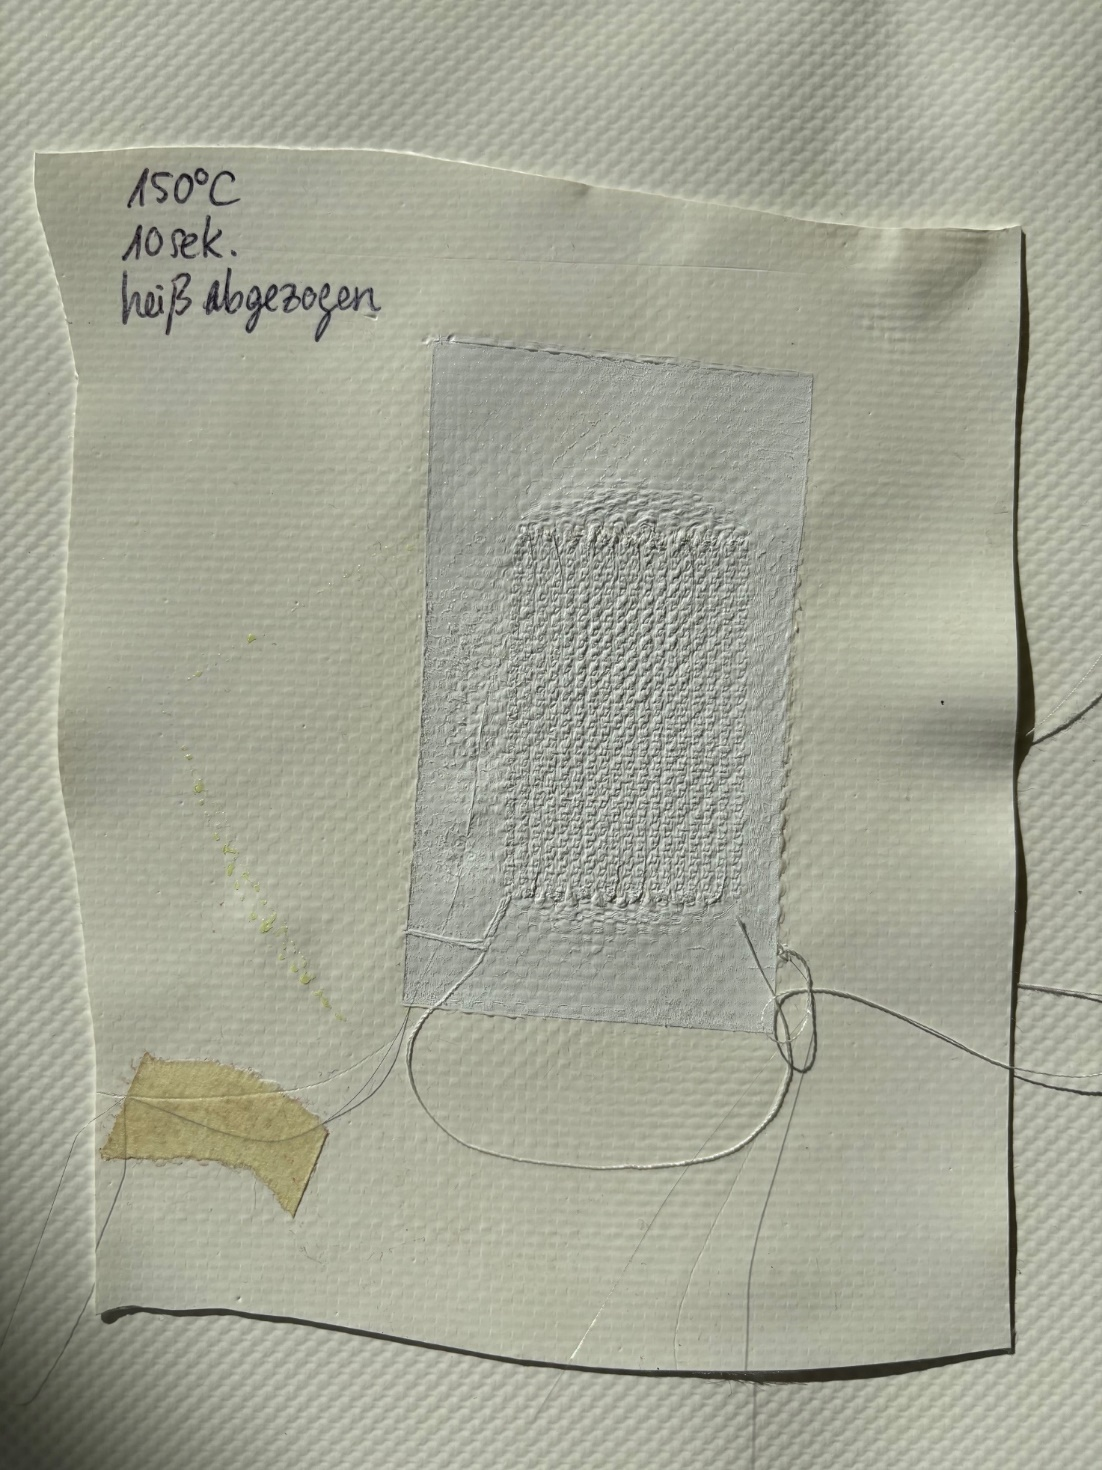 150°C
10 sek.
heiß abgezogen